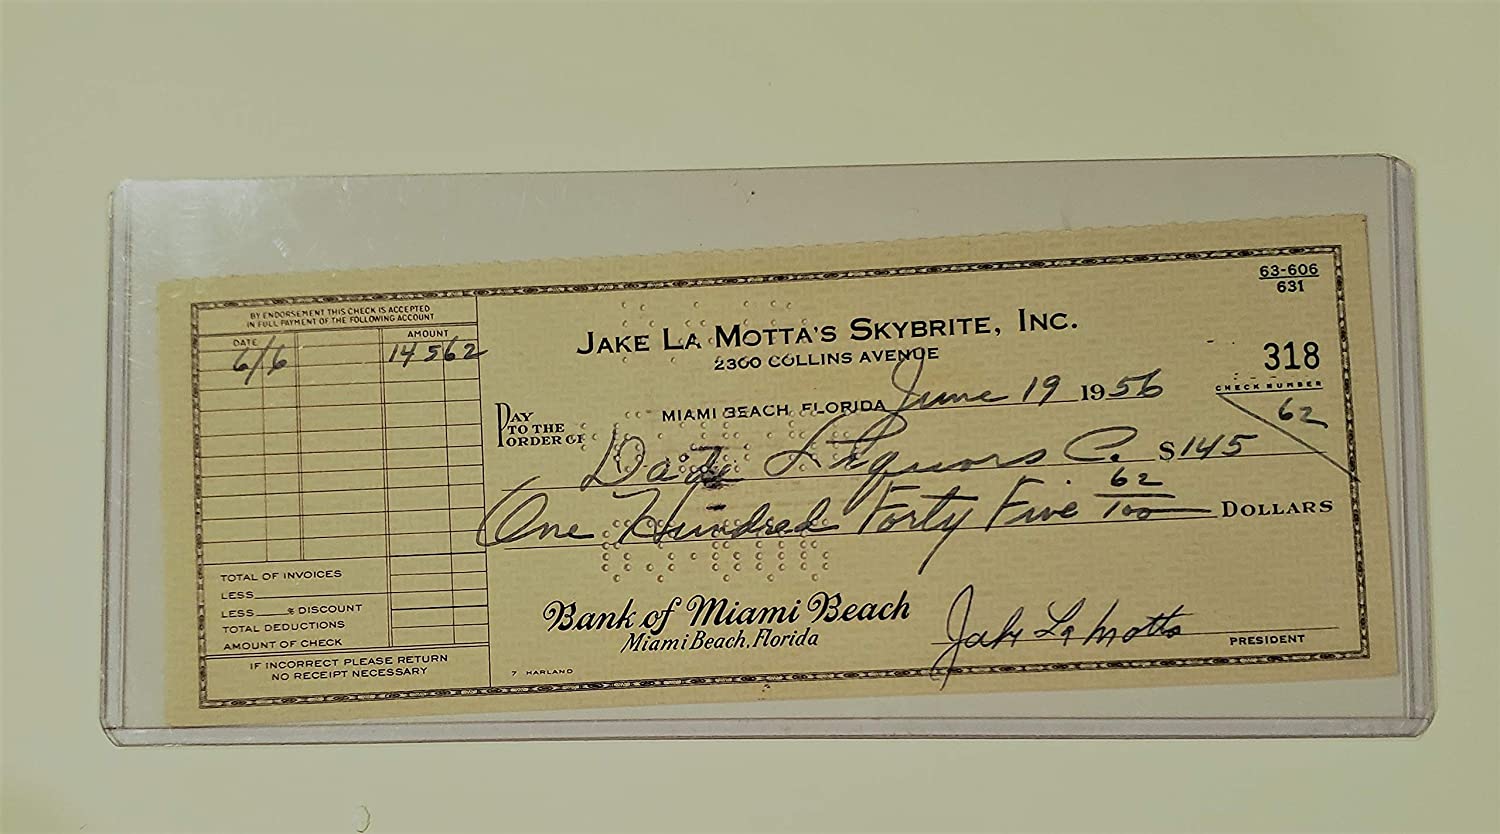 BY ENDORSEMENT THIS CHECK IS ACCEPTED
IN FULL PAYMENT OF THE FOLLOWING ACCOUNT
DATE AMOUNT
6/6 145 62
TOTAL OF INVOICES
LESS
LESS % DISCOUNT
TOTAL DEDUCTIONS
AMOUNT OF CHECK
IF INCORRECT PLEASE RETURN
NO RECEIPT NECESSARY
63-606
631
JAKE LA MOTTA'S SKYBRITE, INC.
2300 COLLINS AVENUE
318
CHECK NUMBER
MIAMI BEACH, FLORIDA June 19 1956
PAY
TO THE
ORDER OF Dade Liquors Co. $145 62
One Hundred Forty Five 62/100 DOLLARS
Bank of Miami Beach
Miami Beach, Florida
Jake La Motta
PRESIDENT
7 HARLAND